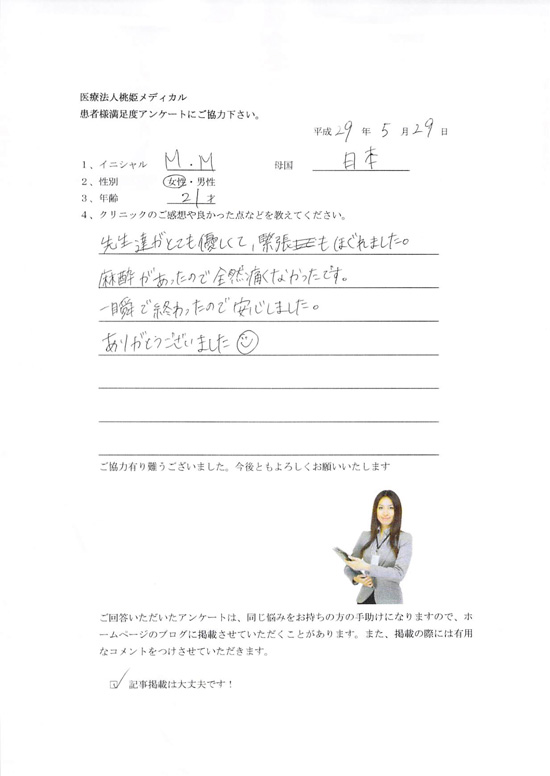 医療法人桃姫メディカル
患者様満足度アンケートにご協力下さい。
平成 29 年 5 月 29 日
1、イニシャル M.M 母国 日本
2、性別 女性・男性
3、年齢 21 才
4、クリニックのご感想や良かった点などを教えてください。
先生達がとても優しくて、緊張もほぐれました。
麻酔があったので全然痛くなかったです。
一瞬で終わったので安心しました。
ありがとうございました
ご協力有り難うございました。今後ともよろしくお願いいたします
ご回答いただいたアンケートは、同じ悩みをお持ちの方の手助けになりますので、ホ
ームページのブログに掲載させていただくことがあります。また、掲載の際には有用
なコメントをつけさせていただきます。
☑ 記事掲載は大丈夫です！